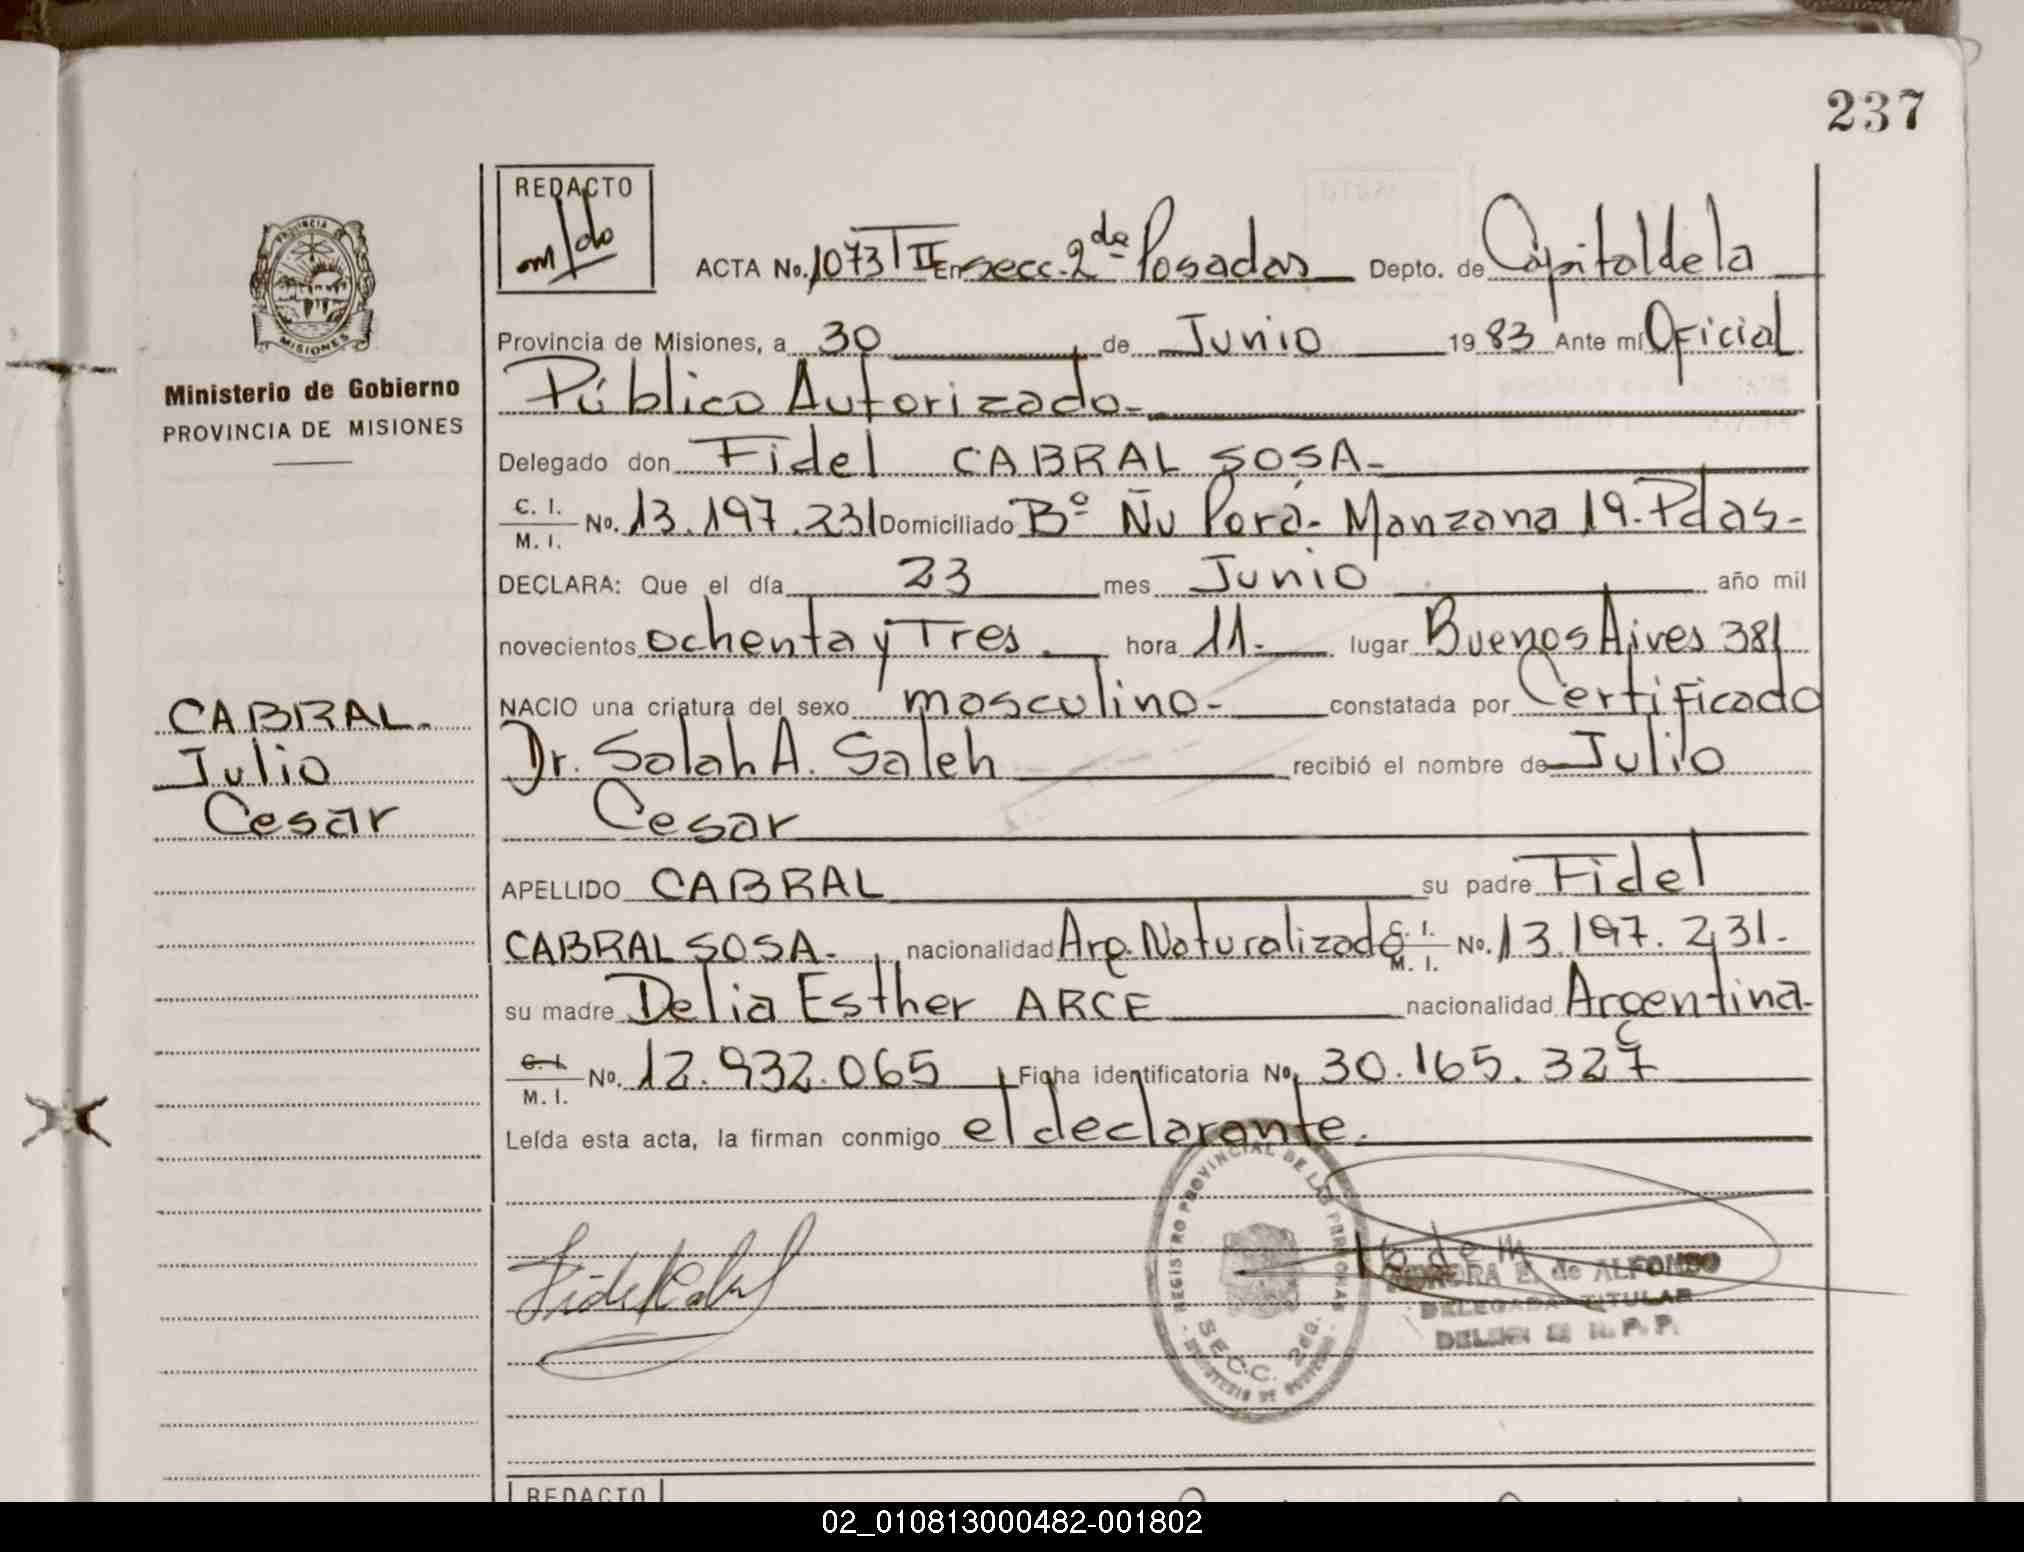 237
REDACTO
PROVINCIA DE
MISIONES
Ministerio de Gobierno
PROVINCIA DE MISIONES
ACTA No. 1073 T II En secc. 2da Posadas Depto. de Capital de la
Provincia de Misiones, a 30 de Junio 1983 Ante mí Oficial
Público Autorizado-
Delegado don Fidel CABRAL SOSA-
C. I. M. I. No. 13.197.231 Domiciliado Bº Ñu Porá- Manzana 19. Pdas-
DECLARA: Que el día 23 mes Junio año mil
novecientos ochenta y Tres hora 11.- lugar Buenos Aires 381
NACIO una criatura del sexo masculino- constatada por Certificado
Dr. Salah A. Saleh recibió el nombre de Julio
Cesar
CABRAL.
Julio
Cesar
APELLIDO CABRAL su padre Fidel
CABRAL SOSA. nacionalidad Arg. Naturalizado C. I. M. I. No. 13.197.231.
su madre Delia Esther ARCE nacionalidad Argentina.
C. I. M. I. No. 12.932.065 Ficha identificatoria No. 30.165.327
Leída esta acta, la firman conmigo el declarante.
REGISTRO PROVINCIAL DE LAS PERSONAS
SECC. 2da.
MINISTERIO DE GOBIERNO
Fidel Cabral
E. de ALFONSO
DELEGADA TITULAR
R. P. P.
REDACTO
02_010813000482-001802